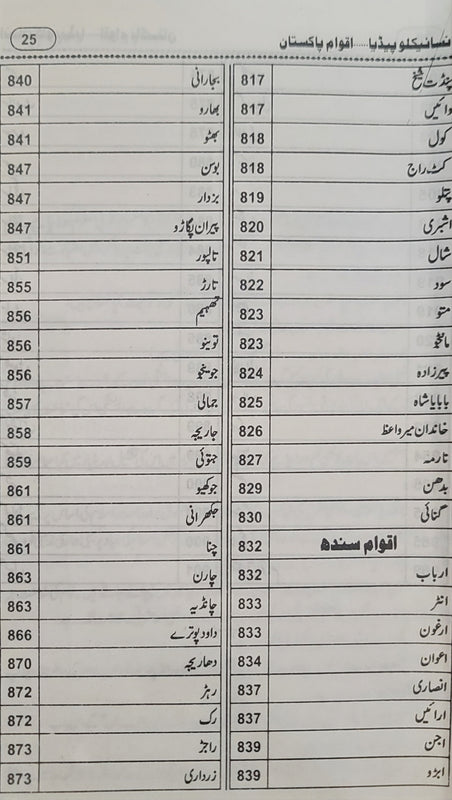 انسائیکلوپیڈیا.....اقوام پاکستان
25
پنڈت شیخ 817
وائیں 817
کول 818
کٹ راج 818
پتلو 819
اشبری 820
شال 821
سود 822
متو 823
مانجو 823
پیرزادہ 824
باباپاشاہ 825
خاندان میر واعظ 826
تارمہ 827
بدھن 829
گنائی 830
اقوام سندھ 832
ارباب 832
انڑ 833
ارغون 833
اعوان 834
انصاری 837
ارائیں 837
اجن 839
ابڑو 839
بجارانی 840
بھارو 841
بھٹو 841
بوسن 847
بزدار 847
پیران پگاڑو 847
تالپور 851
تارڑ 855
تھہیم 856
تونیو 856
جونیجو 856
جمالی 857
جاریجہ 858
جتوئی 859
جوکھیو 861
جکھرانی 861
چنا 861
چارن 863
چانڈیہ 863
داود پوترے 866
دھاریجہ 870
رہڑ 872
رک 872
راجڑ 873
زرداری 873